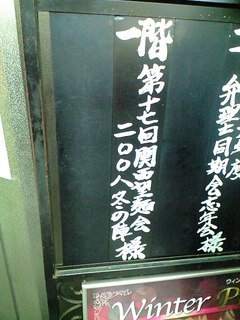 年度
弁理士同期会忘年会様
一階 第十七回関西望麺会
二〇〇八冬の陣 様
ウィン
Winter P